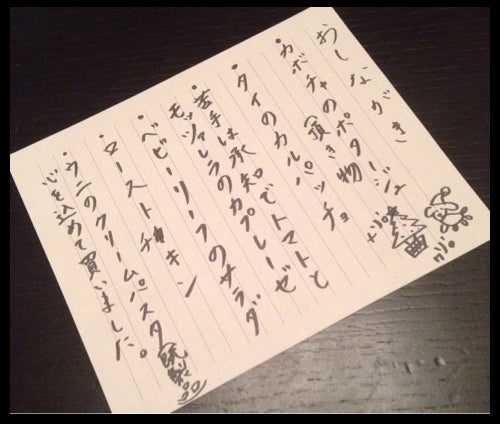 おしながき
・カボチャのポタージュ
頂き物
・タイのカルパッチョ
・苦手は承知でトマトと
モッツァレラのカプレーゼ
・ベビーリーフのサラダ
・ローストチキン
・ウニのクリームパスタ
既製品
心を込めて買いました。